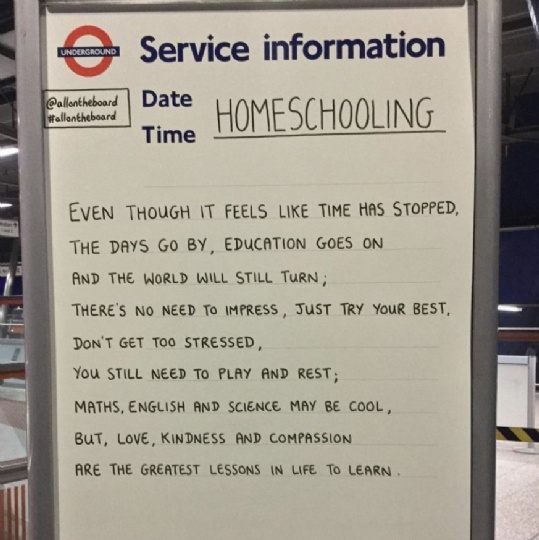 UNDERGROUND
Service information
@allontheboard
#allontheboard
Date
Time
HOMESCHOOLING
EVEN THOUGH IT FEELS LIKE TIME HAS STOPPED,
THE DAYS GO BY, EDUCATION GOES ON
AND THE WORLD WILL STILL TURN;
THERE'S NO NEED TO IMPRESS, JUST TRY YOUR BEST,
DON'T GET TOO STRESSED,
YOU STILL NEED TO PLAY AND REST;
MATHS, ENGLISH AND SCIENCE MAY BE COOL,
BUT, LOVE, KINDNESS AND COMPASSION
ARE THE GREATEST LESSONS IN LIFE TO LEARN.